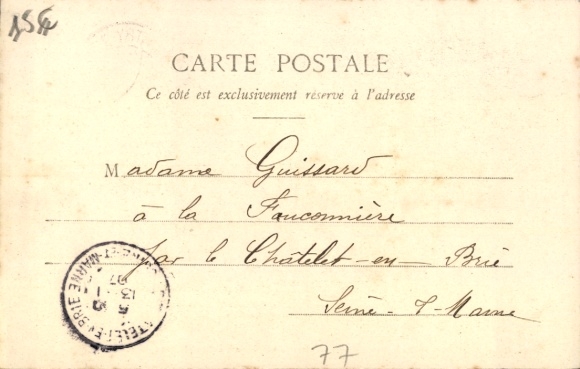 CARTE POSTALE
Ce côté est exclusivement réservé à l'adresse
Madame Guissard
à la Fauconnière
par le Châtelet-en-Brie
Seine-&-Marne
77